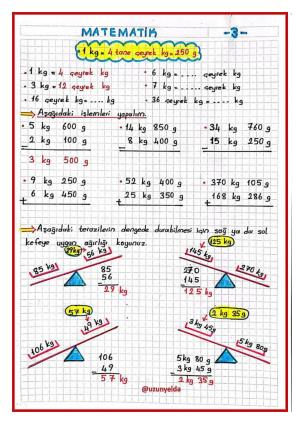 MATEMATİK -3-
1 kg = 4 tane çeyrek kg = 250 g
- 1 kg = 4 çeyrek kg
- 3 kg = 12 çeyrek kg
- 16 çeyrek kg = ..... kg
• 6 kg = ..... çeyrek kg
• 7 kg = ..... çeyrek kg
• 36 çeyrek kg = ..... kg
Aşağıdaki işlemleri yapalım.
• 5 kg 600 g
2 kg 100 g
-
3 kg 500 g
• 14 kg 850 g
8 kg 400 g
-
• 34 kg 760 g
15 kg 250 g
-
• 9 kg 250 g
6 kg 450 g
+
• 52 kg 400 g
25 kg 350 g
+
• 370 kg 105 g
168 kg 286 g
+
Aşağıdaki terazilerin dengede durabilmesi için sağ ya da sol
kefeye uygun ağırlığı koyunuz.
29 kg
56 kg
85 kg
85
56
29 kg
125 kg
145 kg
270 kg
270
145
125 kg
57 kg
49 kg
106 kg
106
49
57 kg
2 kg 35 g
3 kg 45 g
5 kg 80 g
5 kg 80 g
3 kg 45 g
2 kg 35 g
@uzunyelda